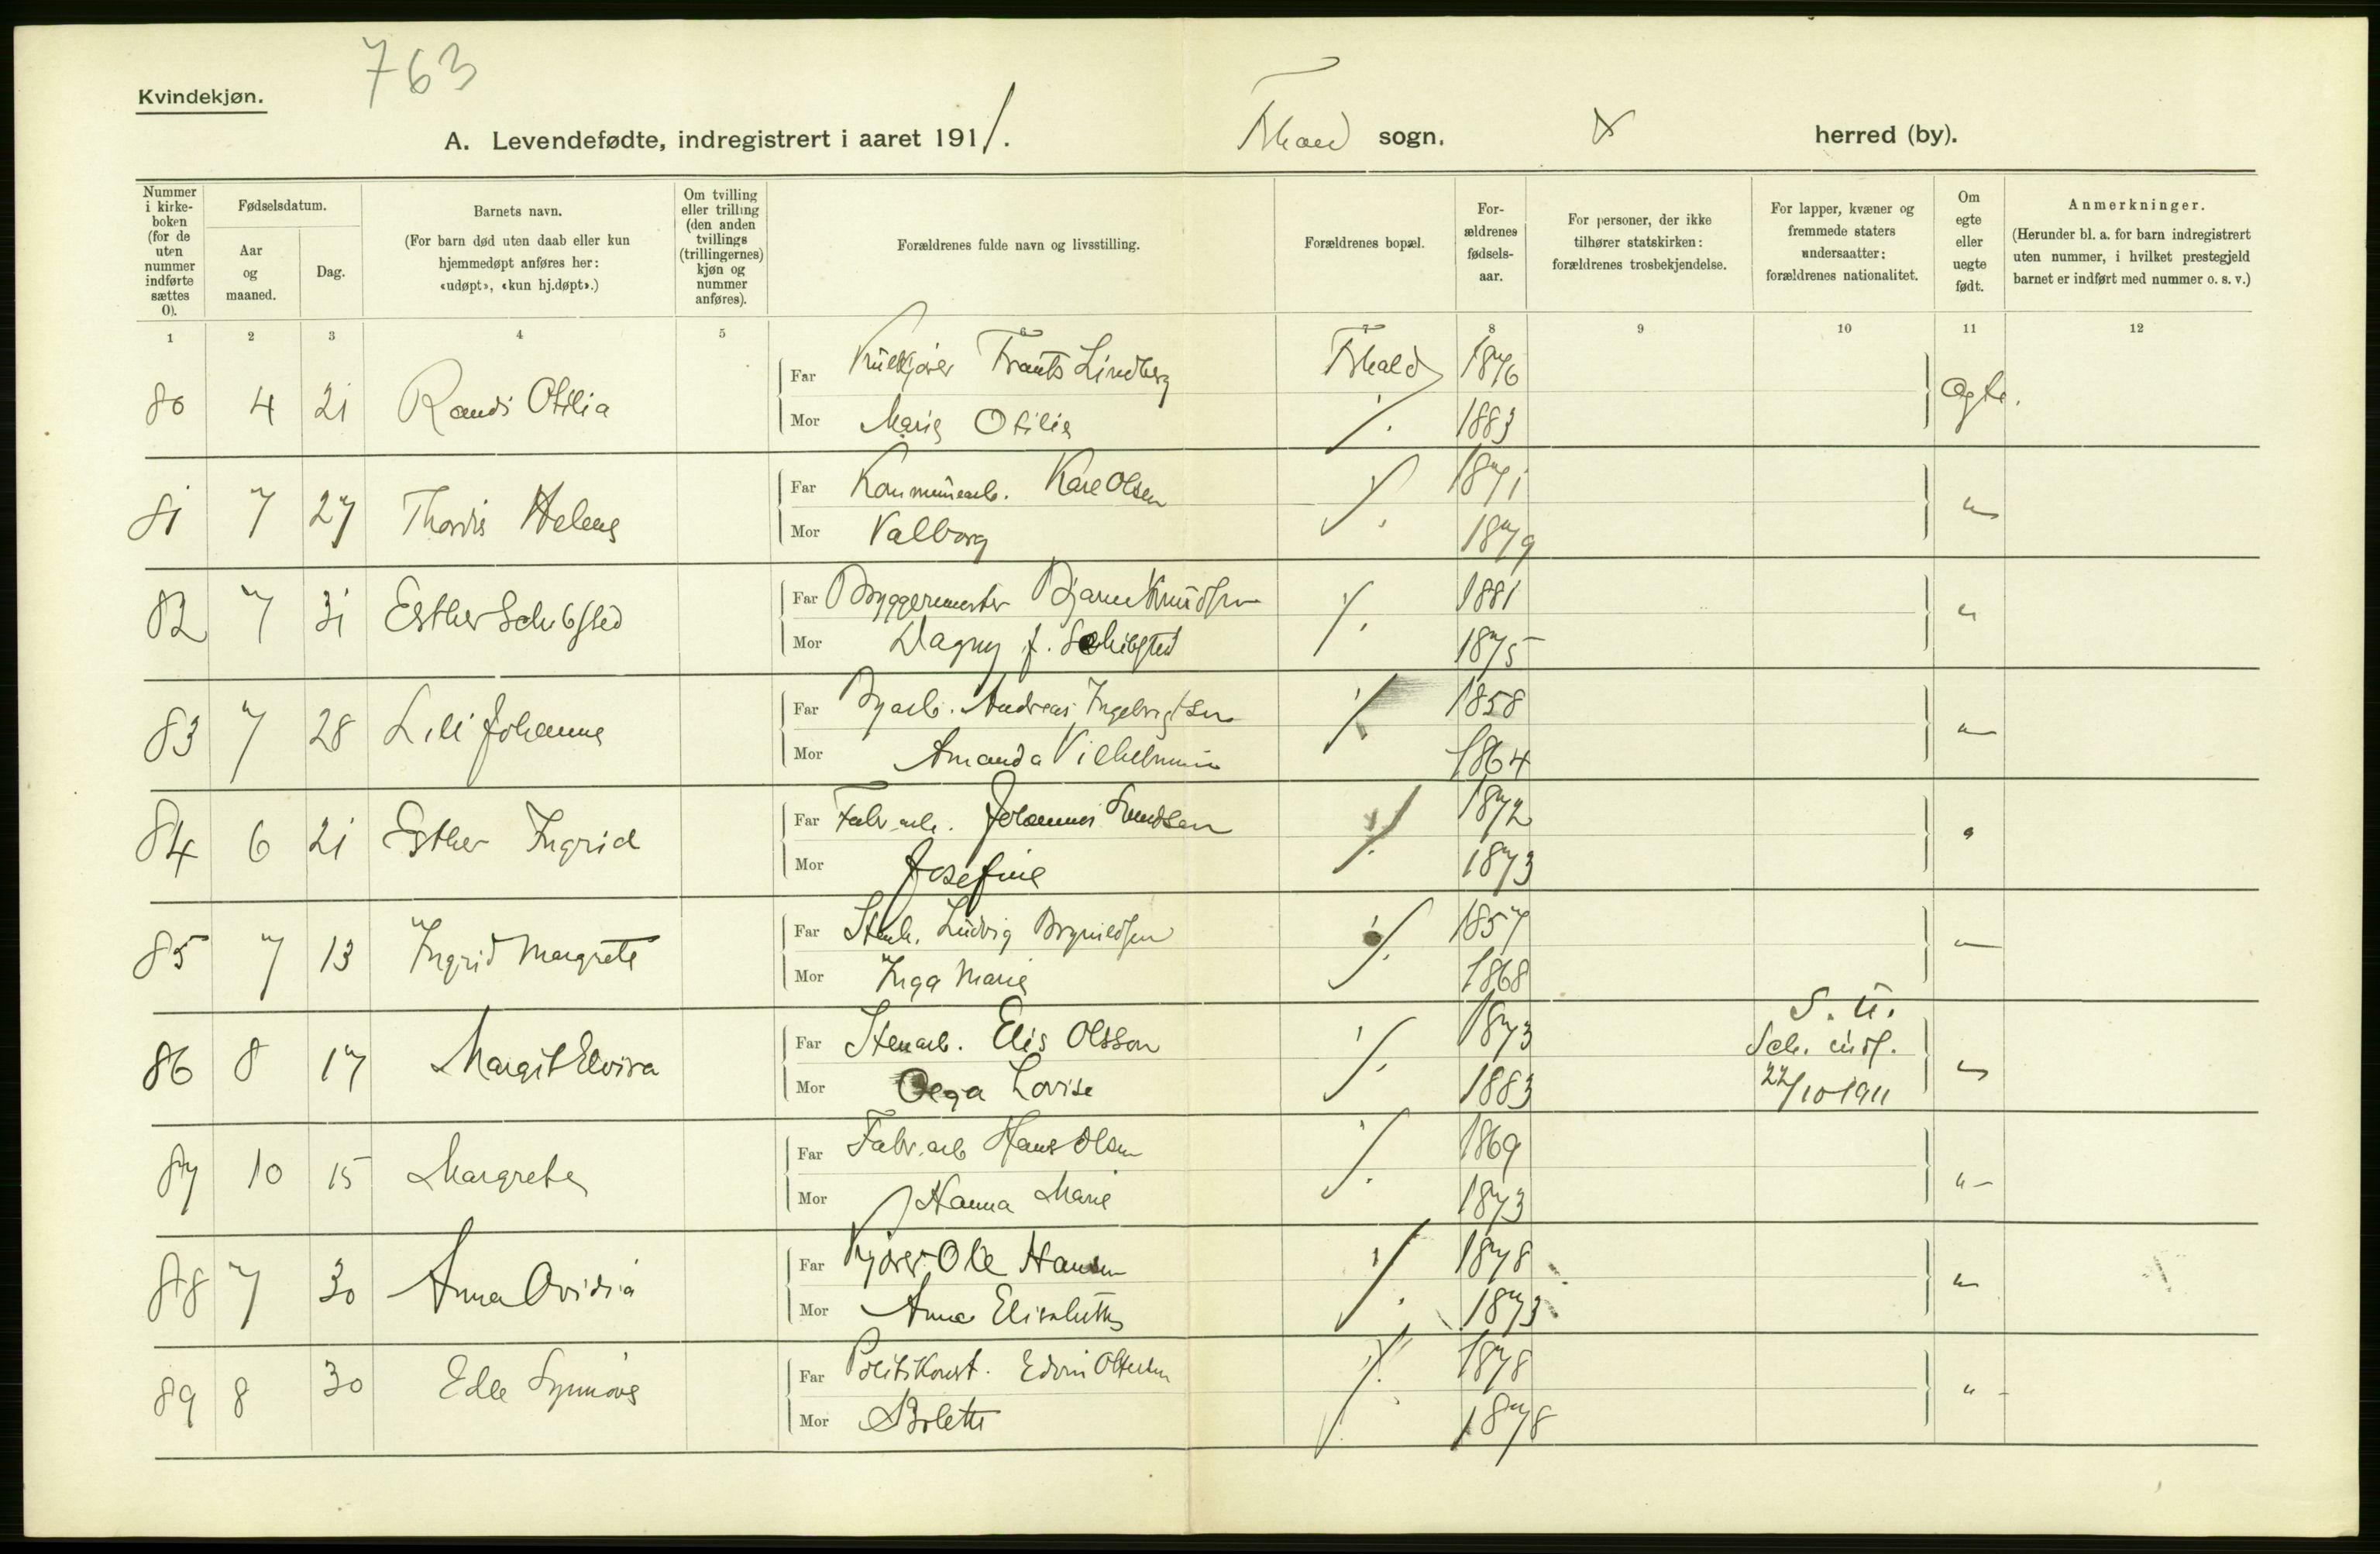 763
Kvindekjøn.
A. Levendefødte, indregistrert i aaret 1911. Fhald sogn. herred (by).
Nummer i kirkeboken (for de uten nummer indførte sættes 0).
Fødselsdatum.
Aar og maaned.
Dag.
Barnets navn.
(For barn død uten daab eller kun hjemmedøpt anføres her: «udøpt», «kun hj.døpt».)
Om tvilling eller trilling (den anden tvillings (trillingernes) kjøn og nummer anføres).
Forældrenes fulde navn og livsstilling.
Forældrenes bopæl.
Forældrenes fødselsaar.
For personer, der ikke tilhører statskirken: forældrenes trosbekjendelse.
For lapper, kvæner og fremmede staters undersaatter: forældrenes nationalitet.
Om egte eller uegte født.
Anmerkninger.
(Herunder bl. a. for barn indregistrert uten nummer, i hvilket prestegjeld barnet er indført med nummer o. s. v.)
1 2 3 4 5 6 7 8 9 10 11 12
80 4 21 Randi Otilia Far Frants Lindberg Fhald 1876 Ægte.
Mor Marie Otilie 1883
81 7 27 Thordis Helene Far Kommunearb. Karl Olsen 1871 "
Mor Valborg 1879
82 7 31 Esther Schibsted Far Bryggermester Bjarne Knudsen 1881 "
Mor Dagny f. Schibsted 1875
83 7 28 Lilli Johanne Far Byarb. Andreas Ingebrigtsen 1858 "
Mor Amanda Vilhelmine 1864
84 6 21 Esther Ingrid Far Fabr. arb. Johannes 1872 "
Mor Josefine 1873
85 7 13 Ingrid Margrete Far Stenh. Ludvig Brynildsen 1857 "
Mor Inga Marie 1868
86 8 17 Margit Elvira Far Stenarb. Elis Olsson 1873 S. U. "
Mor Olga Lovise 1883 Sch. inds. 22/10 1911
87 10 15 Margrete Far Fabr. arb Hans Olsen 1869 "
Mor Hanna Marie 1873
88 7 30 Anna Ovidia Far Kjører Ole Hansen 1878 "
Mor Anna Elisabeth 1873
89 8 30 Edle Synnøve Far Politikonst. Edvin 1878 "
Mor Bolette 1878